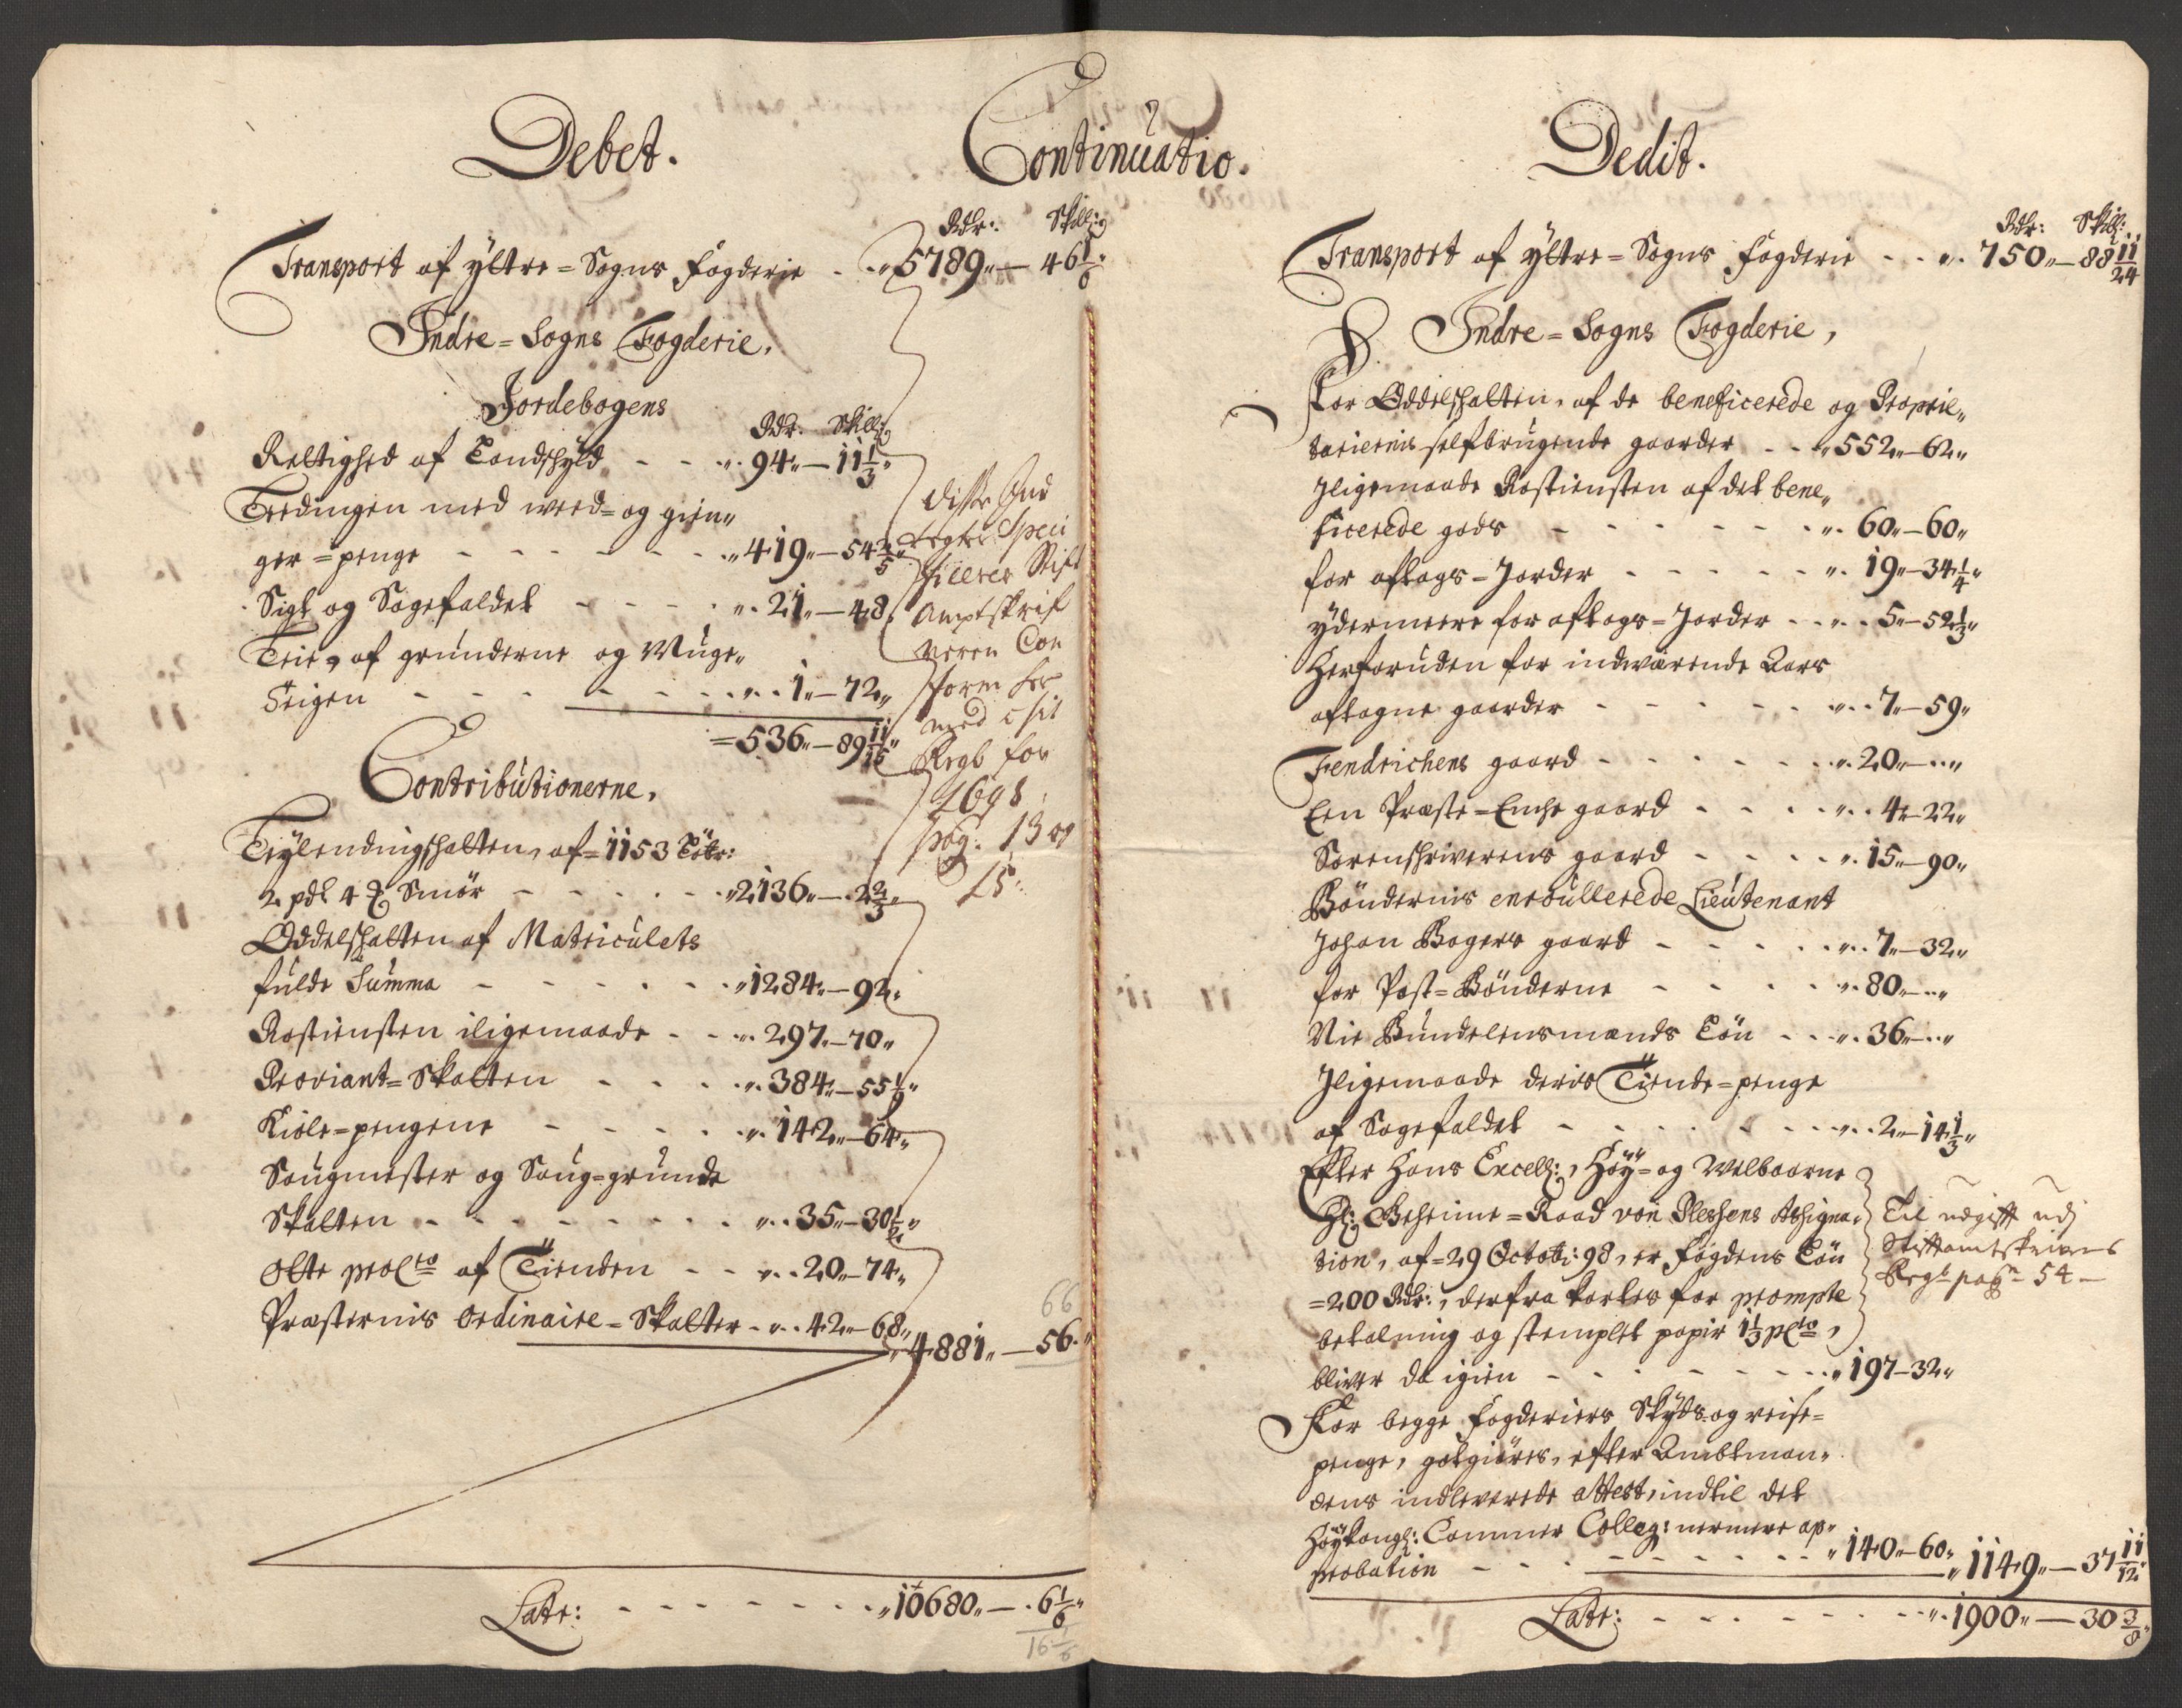 Debet.
Continuatio.
Rdr: Skill:
Transport af ÿttre=Sogns fogderie - „5789„— 46 1/6„
Indre=Sogns Fogderie,
Jordebogens
Rdr. Skill:
Rettighed af Landschyld - - - „94„—11 1/3„
Leedingen med weed= og gien„
ger=penge - - - - - „419„—54 2/5„
Sigt og Sagefaldet - - - „21„—48„
Leie, af grunderne og Muge„
Teigen - - - - - - „1„—72„
=536„—89 11/15„
Contributionerne,
Leÿlendingschatten, af=1153 Löbr:
2 pd 4 ℔ Smör - - - - - „2136„—2 2/3„
Oddelschatten af Matriculets
fulde Summa - - - - - „1284„—92„
Rostiensten iligemaade - - „297„—70„
Proviant=Skatten - - - - „384„—55
Kiöle=pengene - - - - „142„—64„
Saugmester og Saug=grunde
Skatten - - - - - - „35„—30 1/2„
Otte procto af Tienden - - „20„—74„
Præsternis ordinaire=Skatter - „42„—68„
„4881„—56„
66
Disse Ind
tegter Speci
ficerer Stift
Amptskrif
veren Con
form her
med i sit
Regb for
1698
pag: 13 og
15:
Latr: - - - - - - - „10680„—„6 1/6„
16 1/6
Dedit.
Rdr: Skill:
Transport af ÿttre=Sogns fogderie - - „750„—88 11/24
Indre=Sogns Fogderie,
For Oddelschatten, af de beneficerede og Proprie„
tariernis selfbrugende gaarder - - „552„—62„
Iligemaade Rostiensten af det bene„
ficerede gods - - - - - - „60„—60„
for aftags=Jorder - - - - - „19„—34 1/4„
ÿdermeere for aftags=Jorder - - „5„—52 1/3„
Herforuden for indwærende Aars
aftagne gaarder - - - - - „7„—59„
Fendrichens gaard - - - - - „20„—„„
Een Præste=Enche gaard - - - - „4„—22„
Sorenschriverens gaard - - - - „15„—90„
Böndernis enroullerede Lieutenant
Johan Bagers gaard - - - - - „7„—32„
for Post=Bönderne - - - - „80„—„„
Nie Bundelensmands Lön - - „36„—„„
Iligemaade deris Tiende=penge
af Sagefaldet - - - - - - „2„—14 1/3„
Efter Hans Excell:, Höÿ= og Welbaarne
Hr: Geheime=Raad von Plessens Assigna„
tion, af=29 Octobr: 98, er fogdens Lön
=200 Rdr:, derfra kortes for prompte
betalning og stemplet papir 1 1/3 pcto,
bliver da igien - - - - - - „197—32„
Til udgifft udj
Stiftamtskrivers
Regb pagn 54 —
For begge fogderiers Skÿds= og reise=
penge, gotgiöres, efter Ambtman„
dens indleverede attest, indtil det
Höÿkongl: Cammer Colleg: nermere ap„
probation - - - - - - - „140„—60„ „1149„—37 11/12„
Latr: - - - - - - - „1900„—30 3/8„